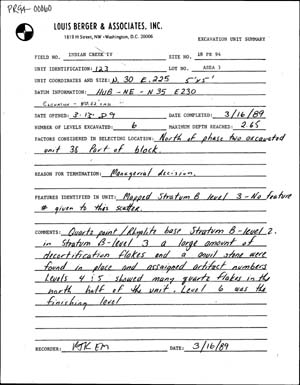 PRGA-00060
LOUIS BERGER & ASSOCIATES, INC.
1819 H Street, NW • Washington, D.C. 20006
EXCAVATION UNIT SUMMARY
FIELD NO. INDIAN CREEK IV SITE NO. 18 PR 94
UNIT IDENTIFICATION: 123 LOT NO. AREA 3
UNIT COORDINATES AND SIZE: N. 30 E. 225 5' x 5'
DATUM INFORMATION: HUB - NE - N35 E230
ELEVATION
DATE OPENED: DATE COMPLETED: 3/16/89
NUMBER OF LEVELS EXCAVATED: 6 MAXIMUM DEPTH REACHED: 2.65
FACTORS CONSIDERED IN SELECTING LOCATION: North of phase two excavated
unit 36 Part of block.
REASON FOR TERMINATION: Managerial decision.
FEATURES IDENTIFIED IN UNIT: Mapped Stratum B level 3 - No feature
# given to this scatter.
COMMENTS: Quartz point / Rhyolite base Stratum B - level 2.
in Stratum B - level 3 a large amount of
decortification flakes and a anvil stone were
found in place and assaigned artifact numbers
Levels 4 & 5 showed many quartz flakes in the
north half of the unit. Level 6 was the
finishing level
RECORDER: EM DATE: 3/16/89